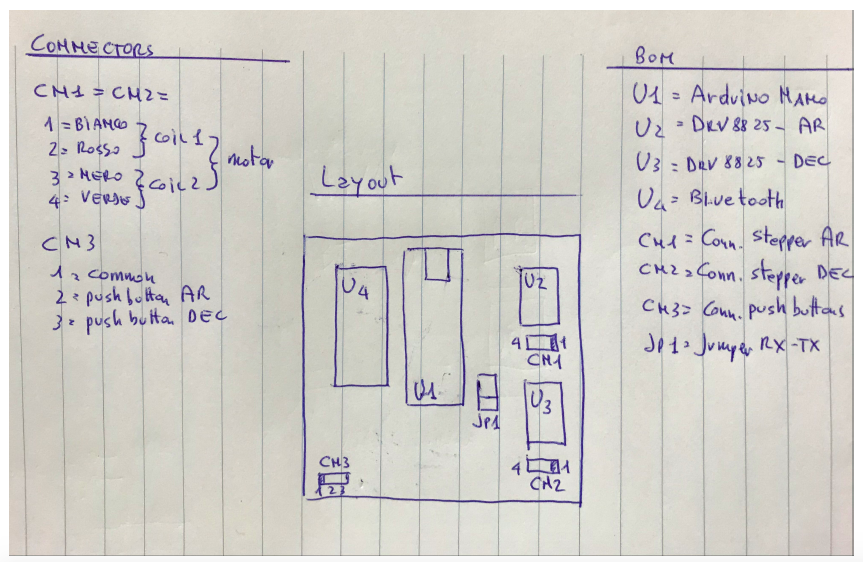 CONNECTORS
CN1 = CN2 =
1 = BIANCO
2 = ROSSO
} coil 1
3 = NERO
4 = VERDE
} coil 2
} motor
CN3
1 = common
2 = push button AR
3 = push button DEC
Layout
U4
U1
U2
4 1
CN1
JP1
U3
4 1
CN2
CN3
1 2 3
BOM
U1 = Arduino NANO
U2 = DRV 8825 - AR
U3 = DRV 8825 - DEC
U4 = Bluetooth
CN1 = Conn. stepper AR
CN2 = Conn. stepper DEC
CN3 = Conn. push buttons
JP1 = Jumper RX-TX